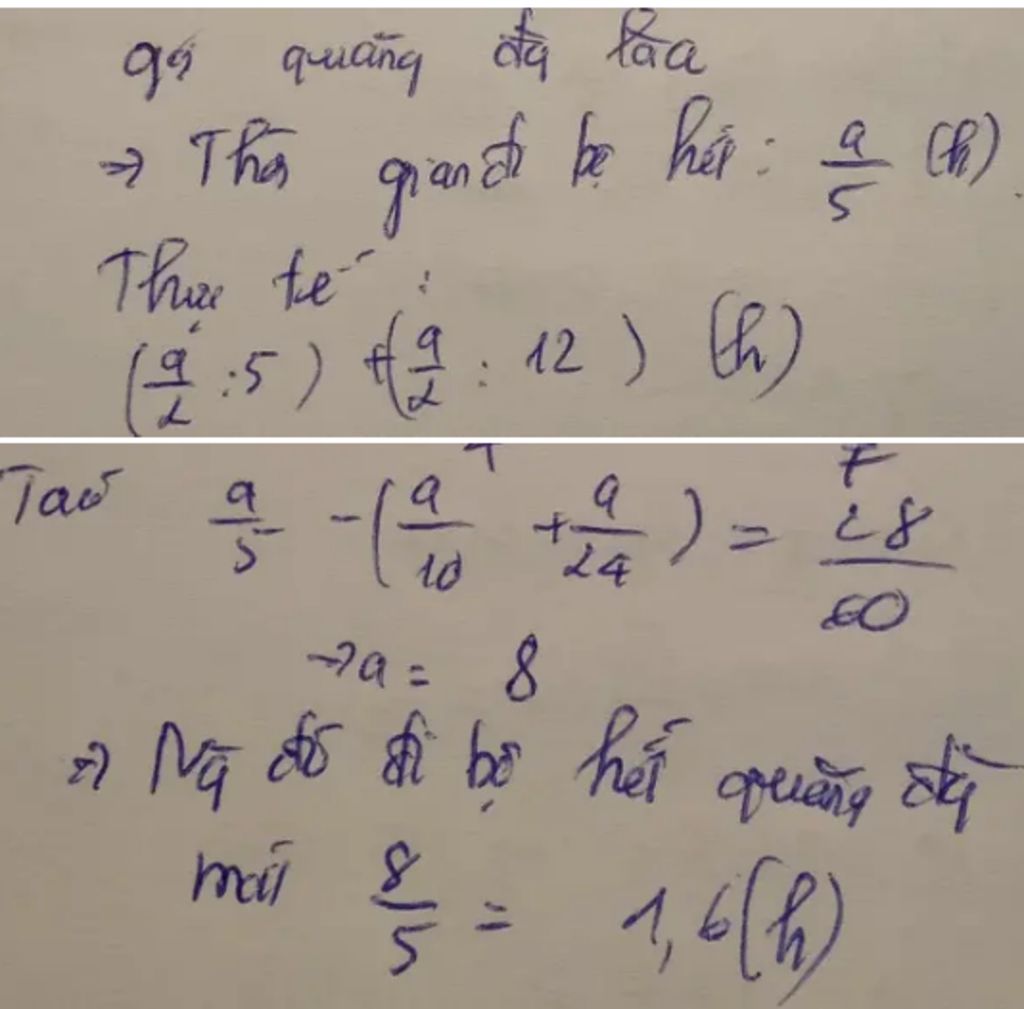 gọi quãng đg là a
=> Thời gian đi bộ hết: a/5 (h)
Thực tế :
(a/2 : 5) + (a/2 : 12) (h)
Ta có a/5 - (a/10 + a/24) = 28/60
-> a = 8
=> Ng đó đi bộ hết quãng đg
mất 8/5 = 1,6 (h)